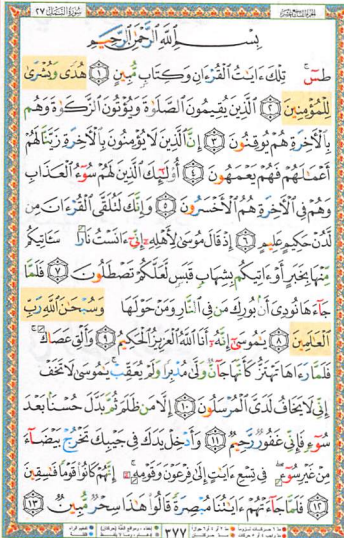 سورة النمل ٢٧
بِسْمِ اللَّهِ الرَّحْمَٰنِ الرَّحِيمِ
طسٓ ۚ تِلْكَ ءَايَٰتُ ٱلْقُرْءَانِ وَكِتَابٍ مُّبِينٍ ١ هُدًى وَبُشْرَىٰ
لِلْمُؤْمِنِينَ ٢ ٱلَّذِينَ يُقِيمُونَ ٱلصَّلَوٰةَ وَيُؤْتُونَ ٱلزَّكَوٰةَ وَهُم
بِٱلْءَاخِرَةِ هُمْ يُوقِنُونَ ٣ إِنَّ ٱلَّذِينَ لَا يُؤْمِنُونَ بِٱلْءَاخِرَةِ زَيَّنَّا لَهُمْ
أَعْمَٰلَهُمْ فَهُمْ يَعْمَهُونَ ٤ أُو۟لَٰٓئِكَ ٱلَّذِينَ لَهُمْ سُوٓءُ ٱلْعَذَابِ
وَهُمْ فِى ٱلْءَاخِرَةِ هُمُ ٱلْأَخْسَرُونَ ٥ وَإِنَّكَ لَتُلَقَّى ٱلْقُرْءَانَ مِن
لَّدُنْ حَكِيمٍ عَلِيمٍ ٦ إِذْ قَالَ مُوسَىٰ لِأَهْلِهِۦٓ إِنِّىٓ ءَانَسْتُ نَارًا سَـَٔاتِيكُم
مِّنْهَا بِخَبَرٍ أَوْ ءَاتِيكُم بِشِهَابٍ قَبَسٍ لَّعَلَّكُمْ تَصْطَلُونَ ٧ فَلَمَّا
جَآءَهَا نُودِىَ أَنۢ بُورِكَ مَن فِى ٱلنَّارِ وَمَنْ حَوْلَهَا وَسُبْحَٰنَ ٱللَّهِ رَبِّ
ٱلْعَٰلَمِينَ ٨ يَٰمُوسَىٰٓ إِنَّهُۥٓ أَنَا ٱللَّهُ ٱلْعَزِيزُ ٱلْحَكِيمُ ٩ وَأَلْقِ عَصَاكَ ۚ
فَلَمَّا رَءَاهَا تَهْتَزُّ كَأَنَّهَا جَآنٌّ وَلَّىٰ مُدْبِرًا وَلَمْ يُعَقِّبْ ۚ يَٰمُوسَىٰ لَا تَخَفْ
إِنِّى لَا يَخَافُ لَدَىَّ ٱلْمُرْسَلُونَ ١٠ إِلَّا مَن ظَلَمَ ثُمَّ بَدَّلَ حُسْنًۢا بَعْدَ
سُوٓءٍ فَإِنِّى غَفُورٌ رَّحِيمٌ ١١ وَأَدْخِلْ يَدَكَ فِى جَيْبِكَ تَخْرُجْ بَيْضَآءَ
مِنْ غَيْرِ سُوٓءٍ ۖ فِى تِسْعِ ءَايَٰتٍ إِلَىٰ فِرْعَوْنَ وَقَوْمِهِۦٓ ۚ إِنَّهُمْ كَانُوا۟ قَوْمًا فَٰسِقِينَ
١٢ فَلَمَّا جَآءَتْهُمْ ءَايَٰتُنَا مُبْصِرَةً قَالُوا۟ هَٰذَا سِحْرٌ مُّبِينٌ ١٣
٣٧٧